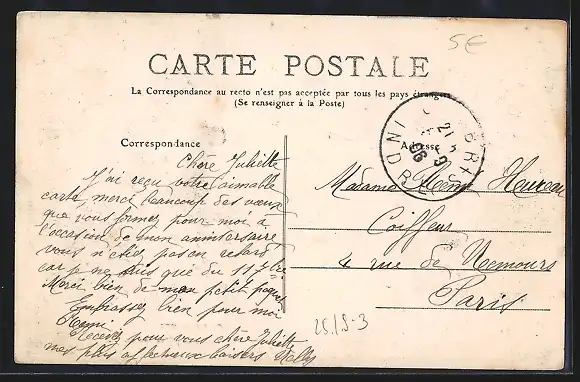 5€
CARTE POSTALE
La Correspondance au recto n'est pas acceptée par tous les pays étrangers
(Se renseigner à la Poste)
Correspondance
Adresse
INDRE
21
9
06
Chère Juliette
J'ai reçu votre aimable
carte merci beaucoup des vœux
que vous formez pour moi à
l'occasion de mon anniversaire
vous n'étiez pas en retard
car je ne suis que du 11
Merci bien de mon petit
Embrassez bien pour moi
Recevez pour vous chère Juliette
mes plus affectueux baisers
Madame Heureau
Coiffeur
4 rue de Nemours
Paris
25/9-3